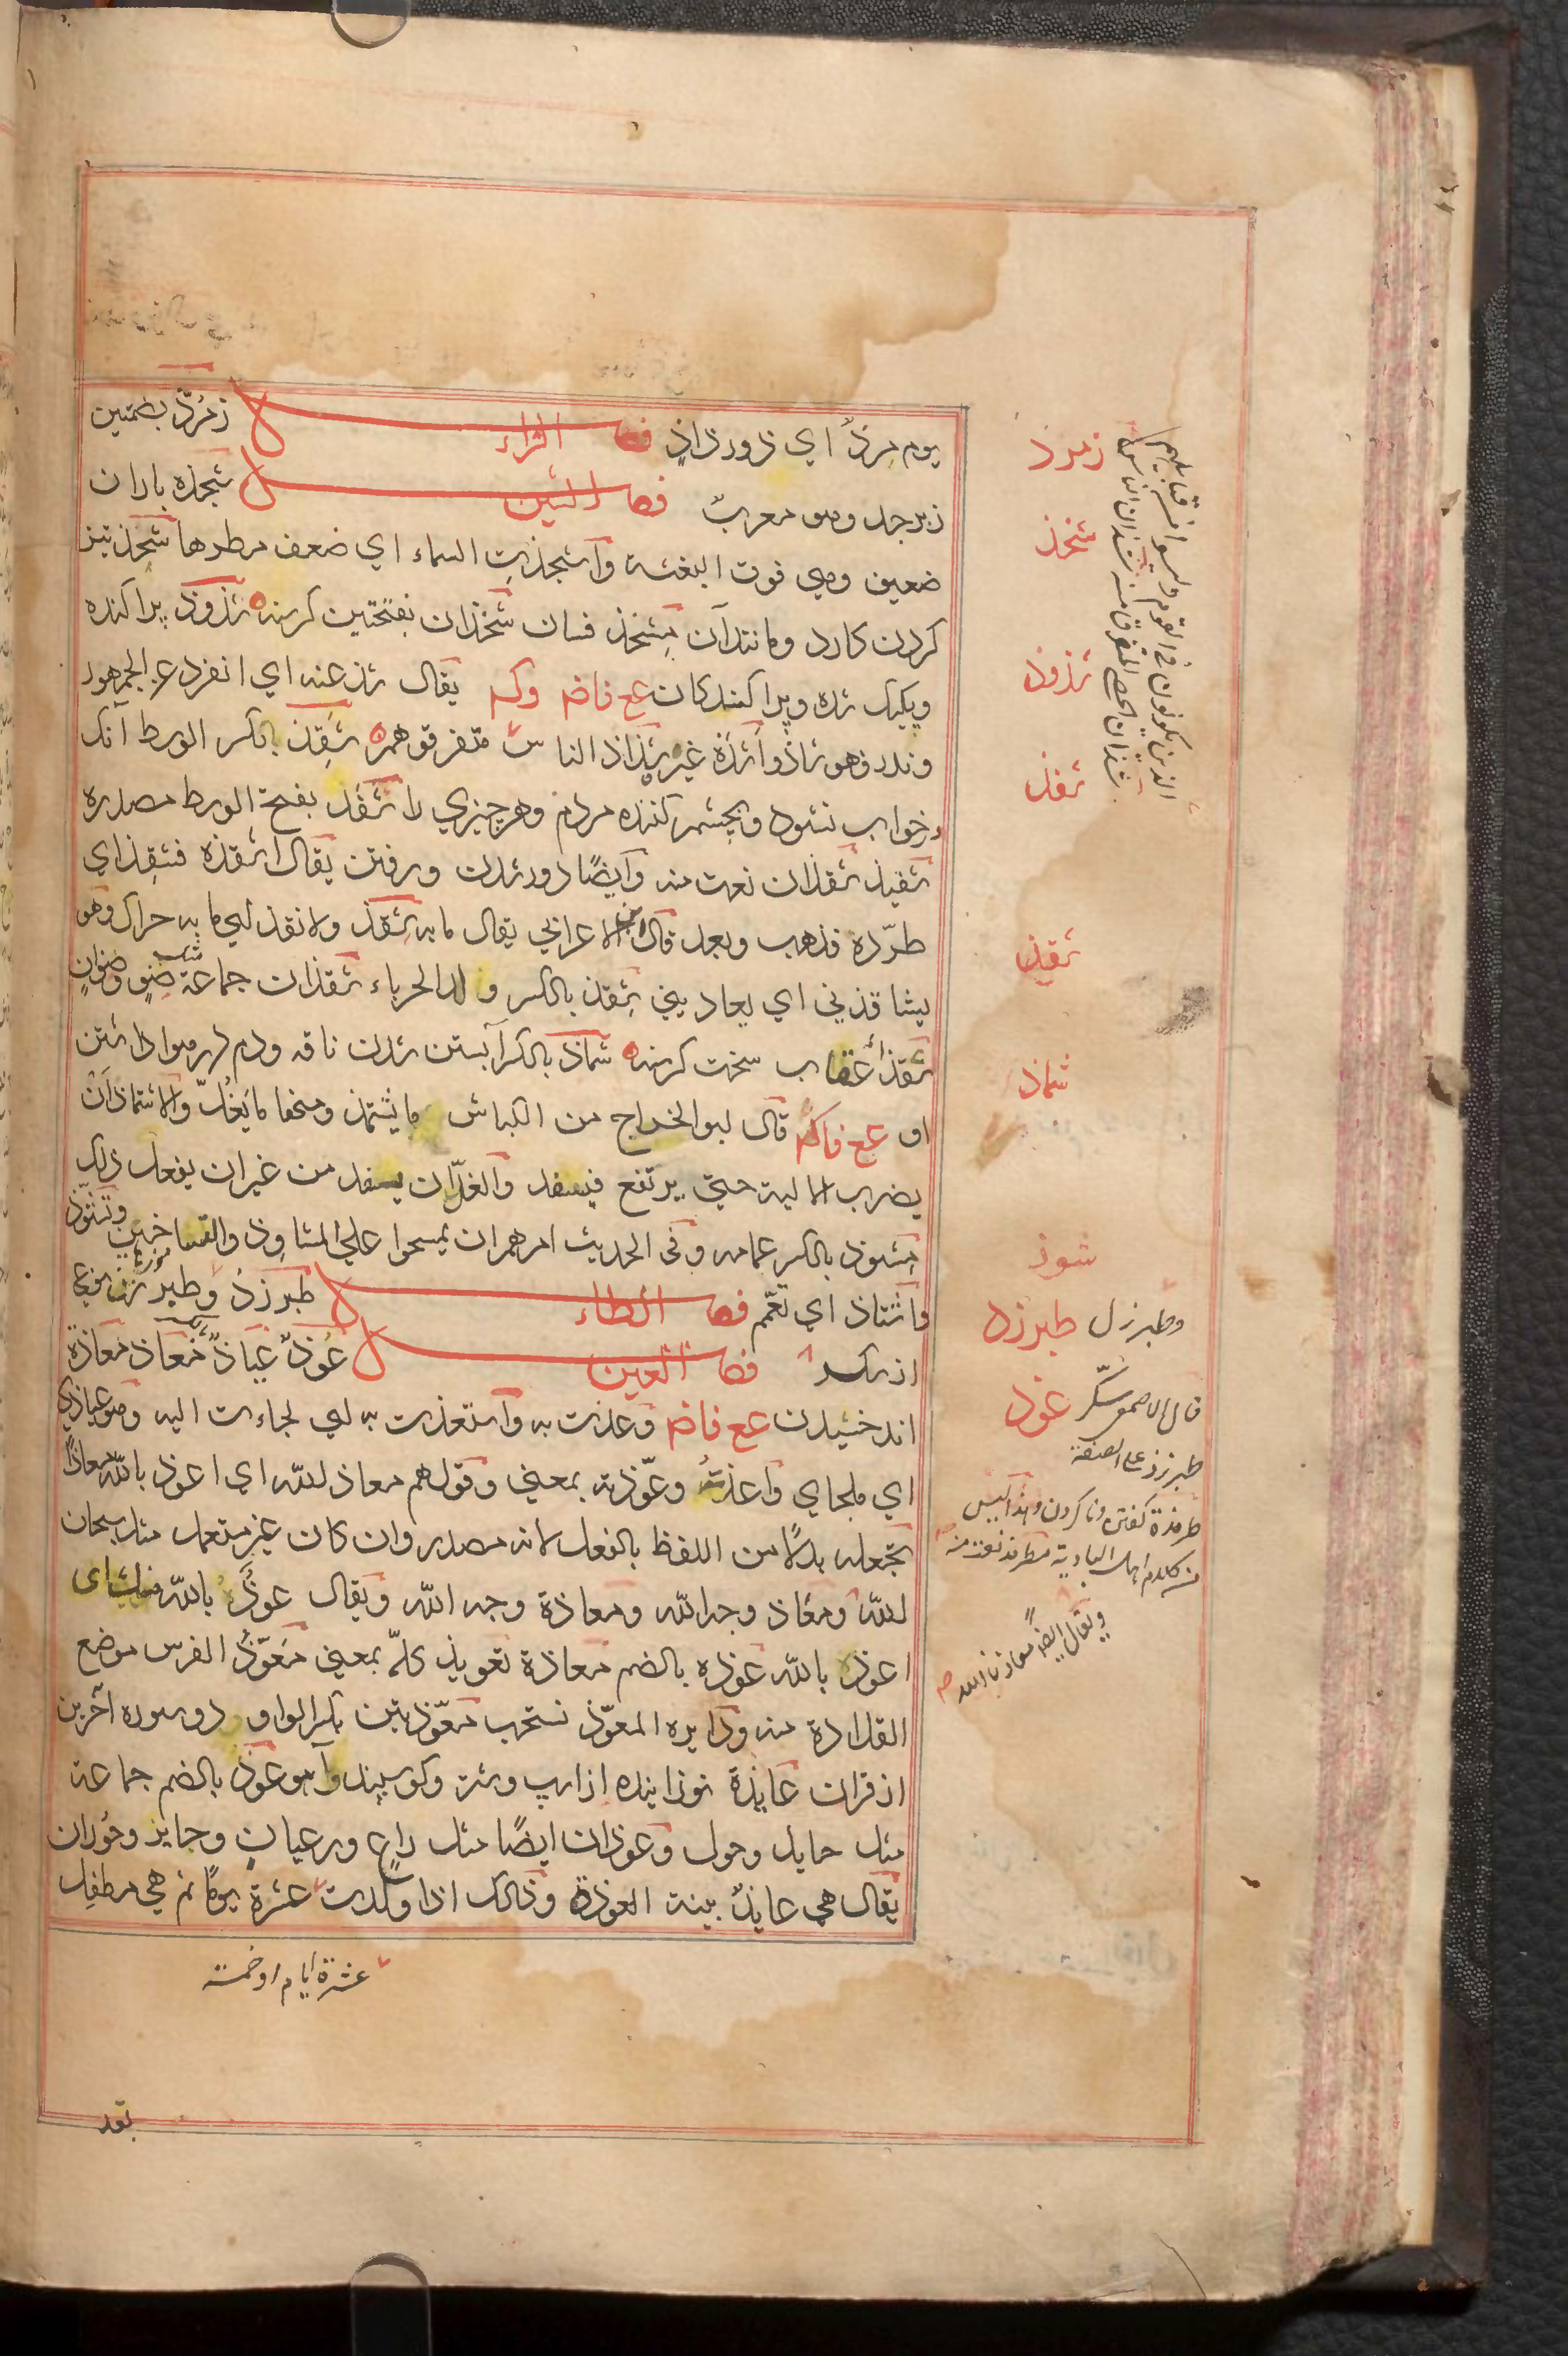 يوم مرذّ اي ذو رذاذ فصل الزاء زمرّذ بضمتين
زبرجد وهو معرب فصل الشين شجذه باران
ضعيف وهي فوق البغشة واشجذت السماء اي ضعف مطرها شحذ تيز
كردن كارد ومانند آن مشحذ فسان شحذان بفتحتين كرسنه شذوذ پراكنده
ويكيك شده وپراكندكان عع فاضم وكسر يقال شذ عنه اي انفرد عن الجمهور
وندر فهو شاذ واشذه غيره شذاذ الناس متفرقوهم شقذ بالكسر الوسط آنك
در خواب نشود وبچشم كننده مردم وهر چيزي را شقذ بفتح الوسط مصدره
شقيذ شقذان نعت منه وايضًا دور شدن ورفتن يقال اشقذه فشقذ اي
طرّده فذهب وبعد قال ابن الاعرابي يقال ما به شقذ ولا نقذ اي ما به حراك وهو
يشاقذني اي يعاديني شقذ بالكسر ولد الحرباء شقذان جماعة مثل صنو وصنوان
شقذاء عقاب سخت كرسنه شماذ بالكسر آبستن شدن ناقه ودم در هوا داشتن
او عع فاكم قال ابو الجراح من الكباش ما يشتمذ ومنها ما يغلّ والاشتماذ ان
يضرب الالية حتى يرتفع فيسفد والغلّ ان يسفد من غير ان يفعل ذلك
مشوذ بالكسر عمامه وفي الحديث امرهم ان يمسحوا علي المشاوذ والتساخين وتشوّذ
واشتاذ اي تعمّم فصل الطاء طبرزذ وطبرزن نوعي
از شكر فصل العين عوذ عياذ معاذ معاذة
اندخشيدن عع فاضم وعذت به واستعذت به اي لجاءت اليه وهو عياذي
اي ملجاي واعذته وعوّذته بمعني وقولهم معاذ لله اي اعوذ بالله معاذًا
تجعله بدلًا من اللفظ بالفعل لانه مصدر وان كان غير مستعمل مثل سبحان
لله ومعاذ وجه الله ومعاذة وجه الله ويقال عوذ بالله منك اي
اعوذ بالله عوذه بالضم معاذة تعويذ كلّه بمعني معوّذ الفرس موضع
القلادة منه ودايره المعوّذ تستحب معوّذتين بكسر الواو دو سوره آخرين
از قران عايذة نوزاينده از اسپ وشتر وكوسپند وآهو عوذ بالضم جماعة
مثل حايل وحول وعوذان ايضًا مثل راعٍ ورعيان وحاير وحوران
يقال هي عايذ بينة العوذة وذالك اذا ولدت عشرة يومًا ثم هي مطفل
عشرة ايام او خمسة
بعد
زمرذ
شحذ
شذوذ
شقذ
شقيذ
شماذ
شوذ
طبرزذ وطبرزل
عوذ قال الاصمعي سكّر
طبرزذ على الصفة
طرمذة كفتن ونا كردن وهذا ليس
من كلام اهل البادية مطرمذ نعت منه
ويقال ايضًا معاذ بالله
الذين يكونون في القوم وليسوا من قبايلهم
شذان الحصى المتفرق منه شذان الناس